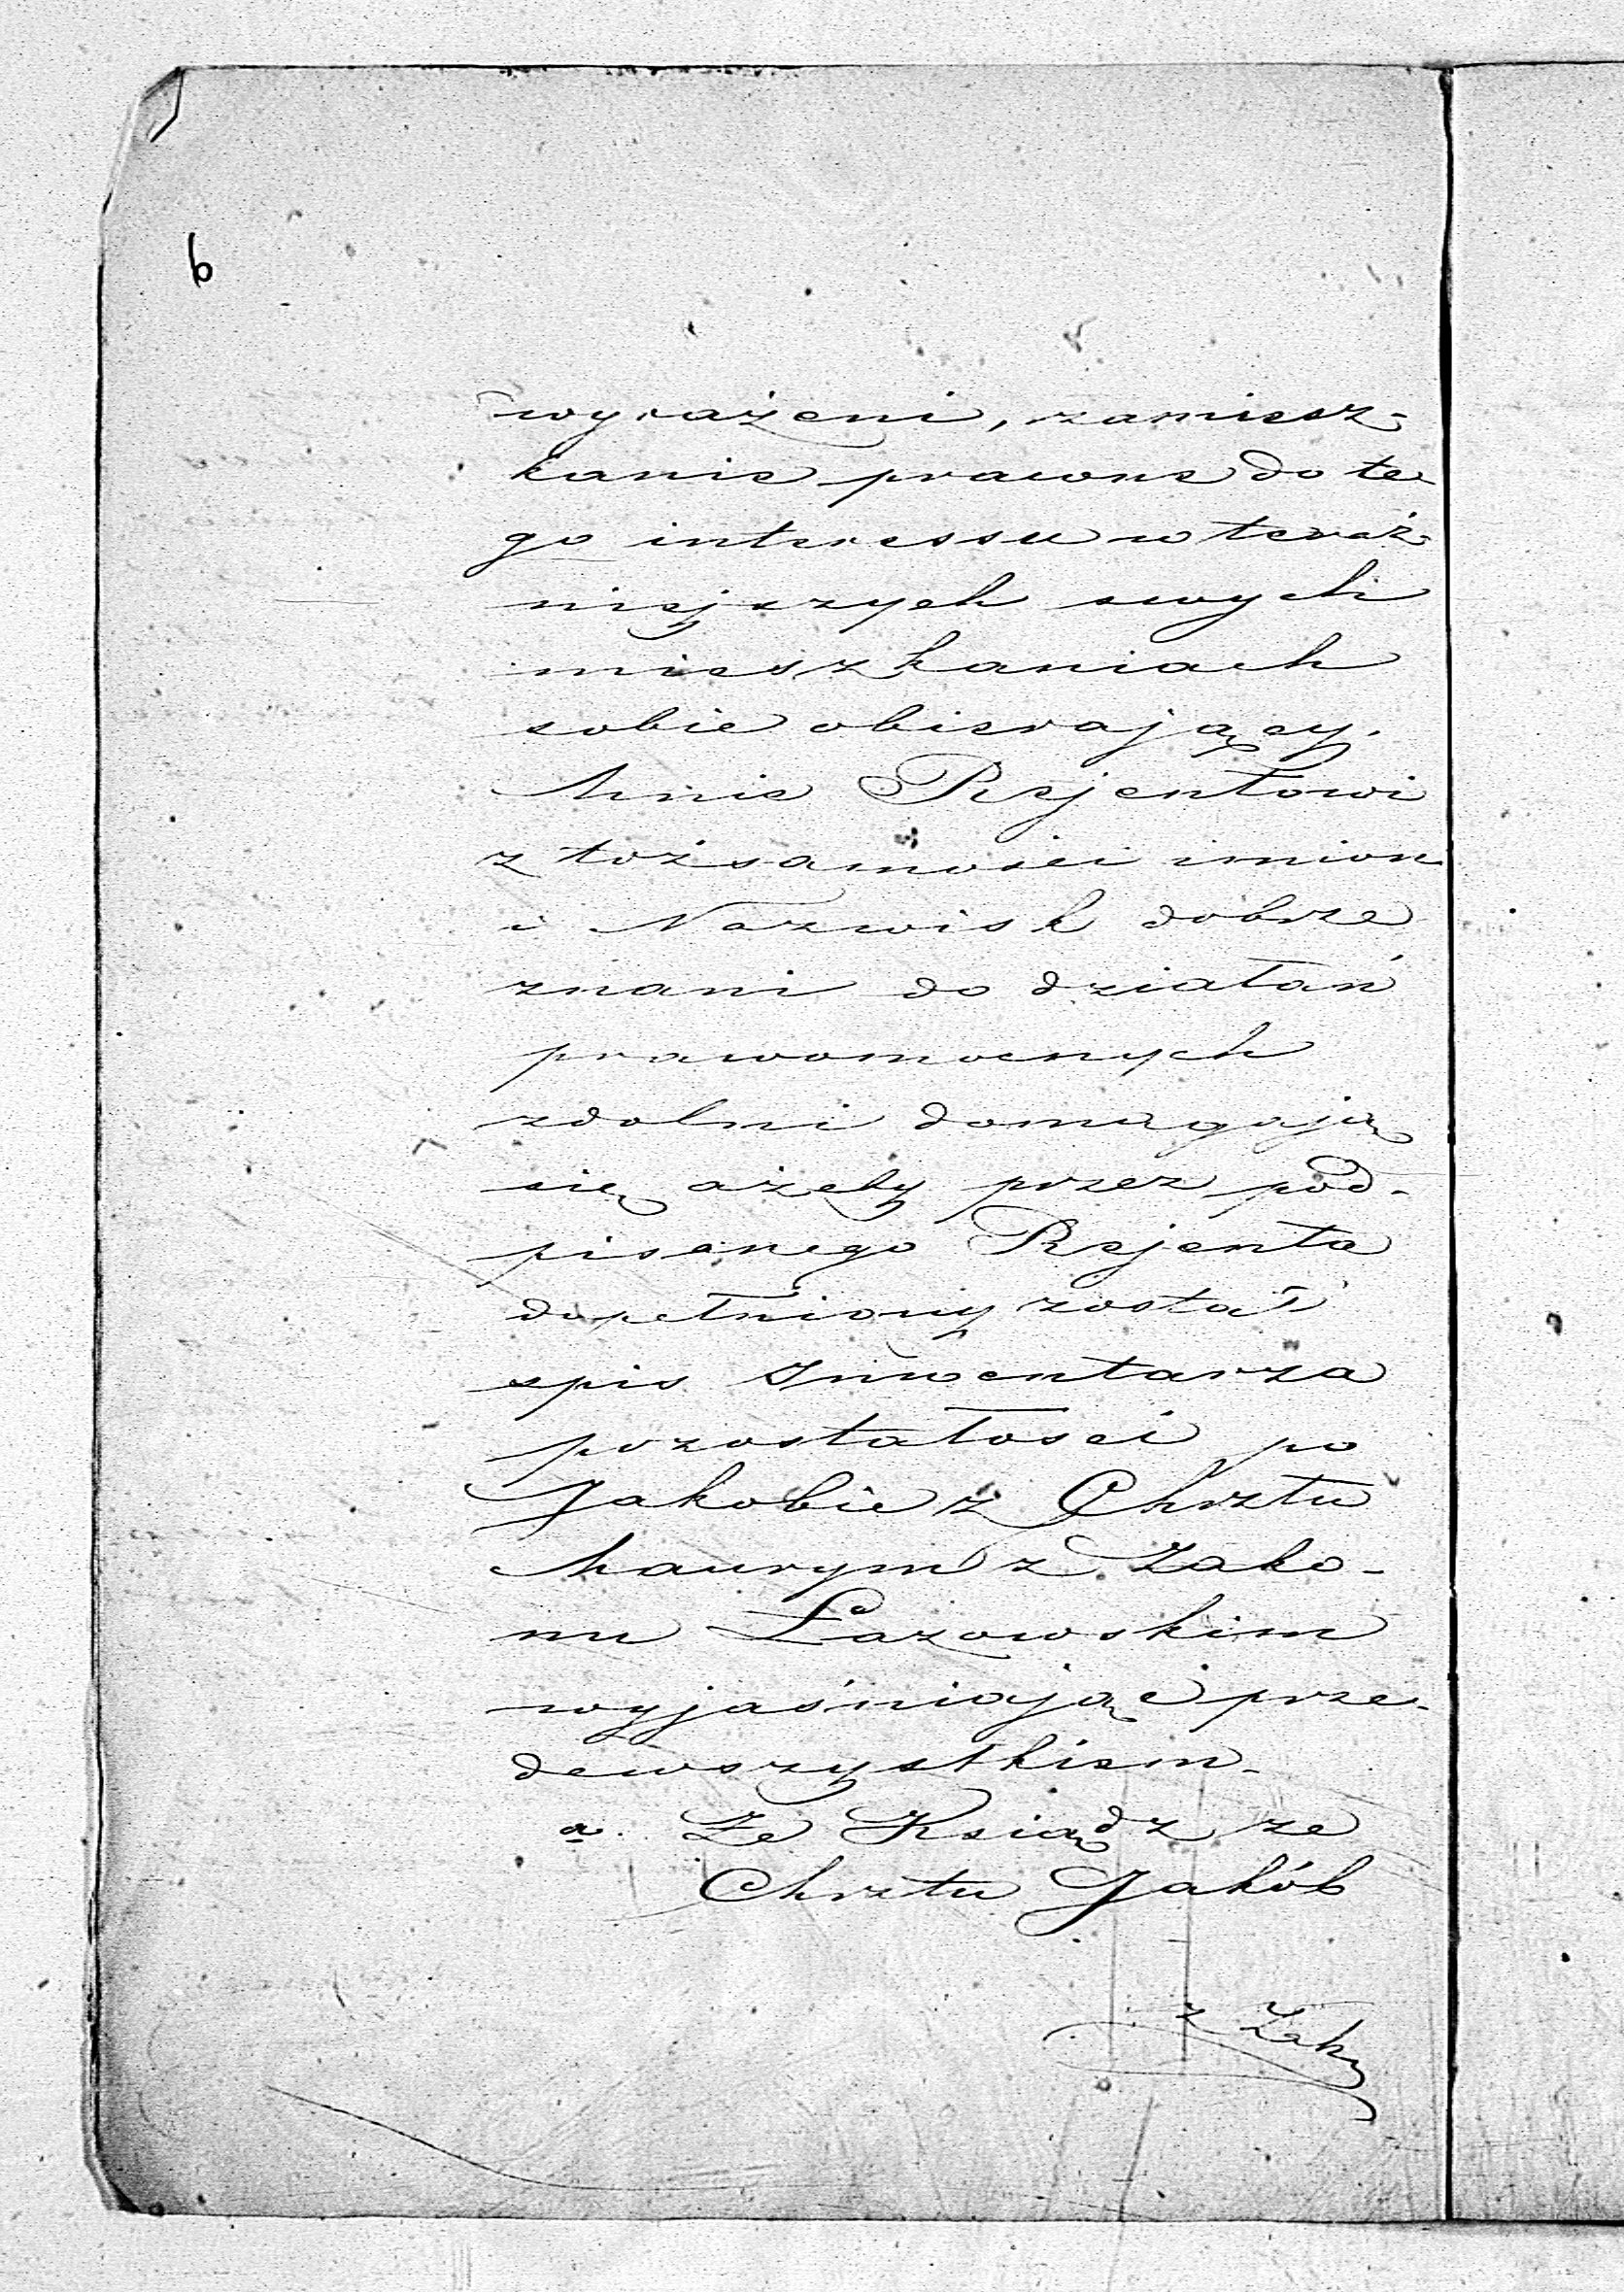 6
wyrażeni, zamiesz-
kanie prawne do te-
go interessu w teraź-
niejszych swych
mieszkaniach
sobie obierający.
Mnie Rejentowi
z tożsamości imion
i Nazwisk dobrze
znani do działań
prawomocnych
zdolni domagają
się ażeby przez pod-
pisanego Rejenta
dopełniony został
spis Inwentarza
pozostałości po
Jakobie z Chrztu
Maurym z Zako-
nu Łazowskim
wyjaśniając prze-
dewszystkiem.
a. Że Ksiądz ze
Chrztu Jakób
z Zako